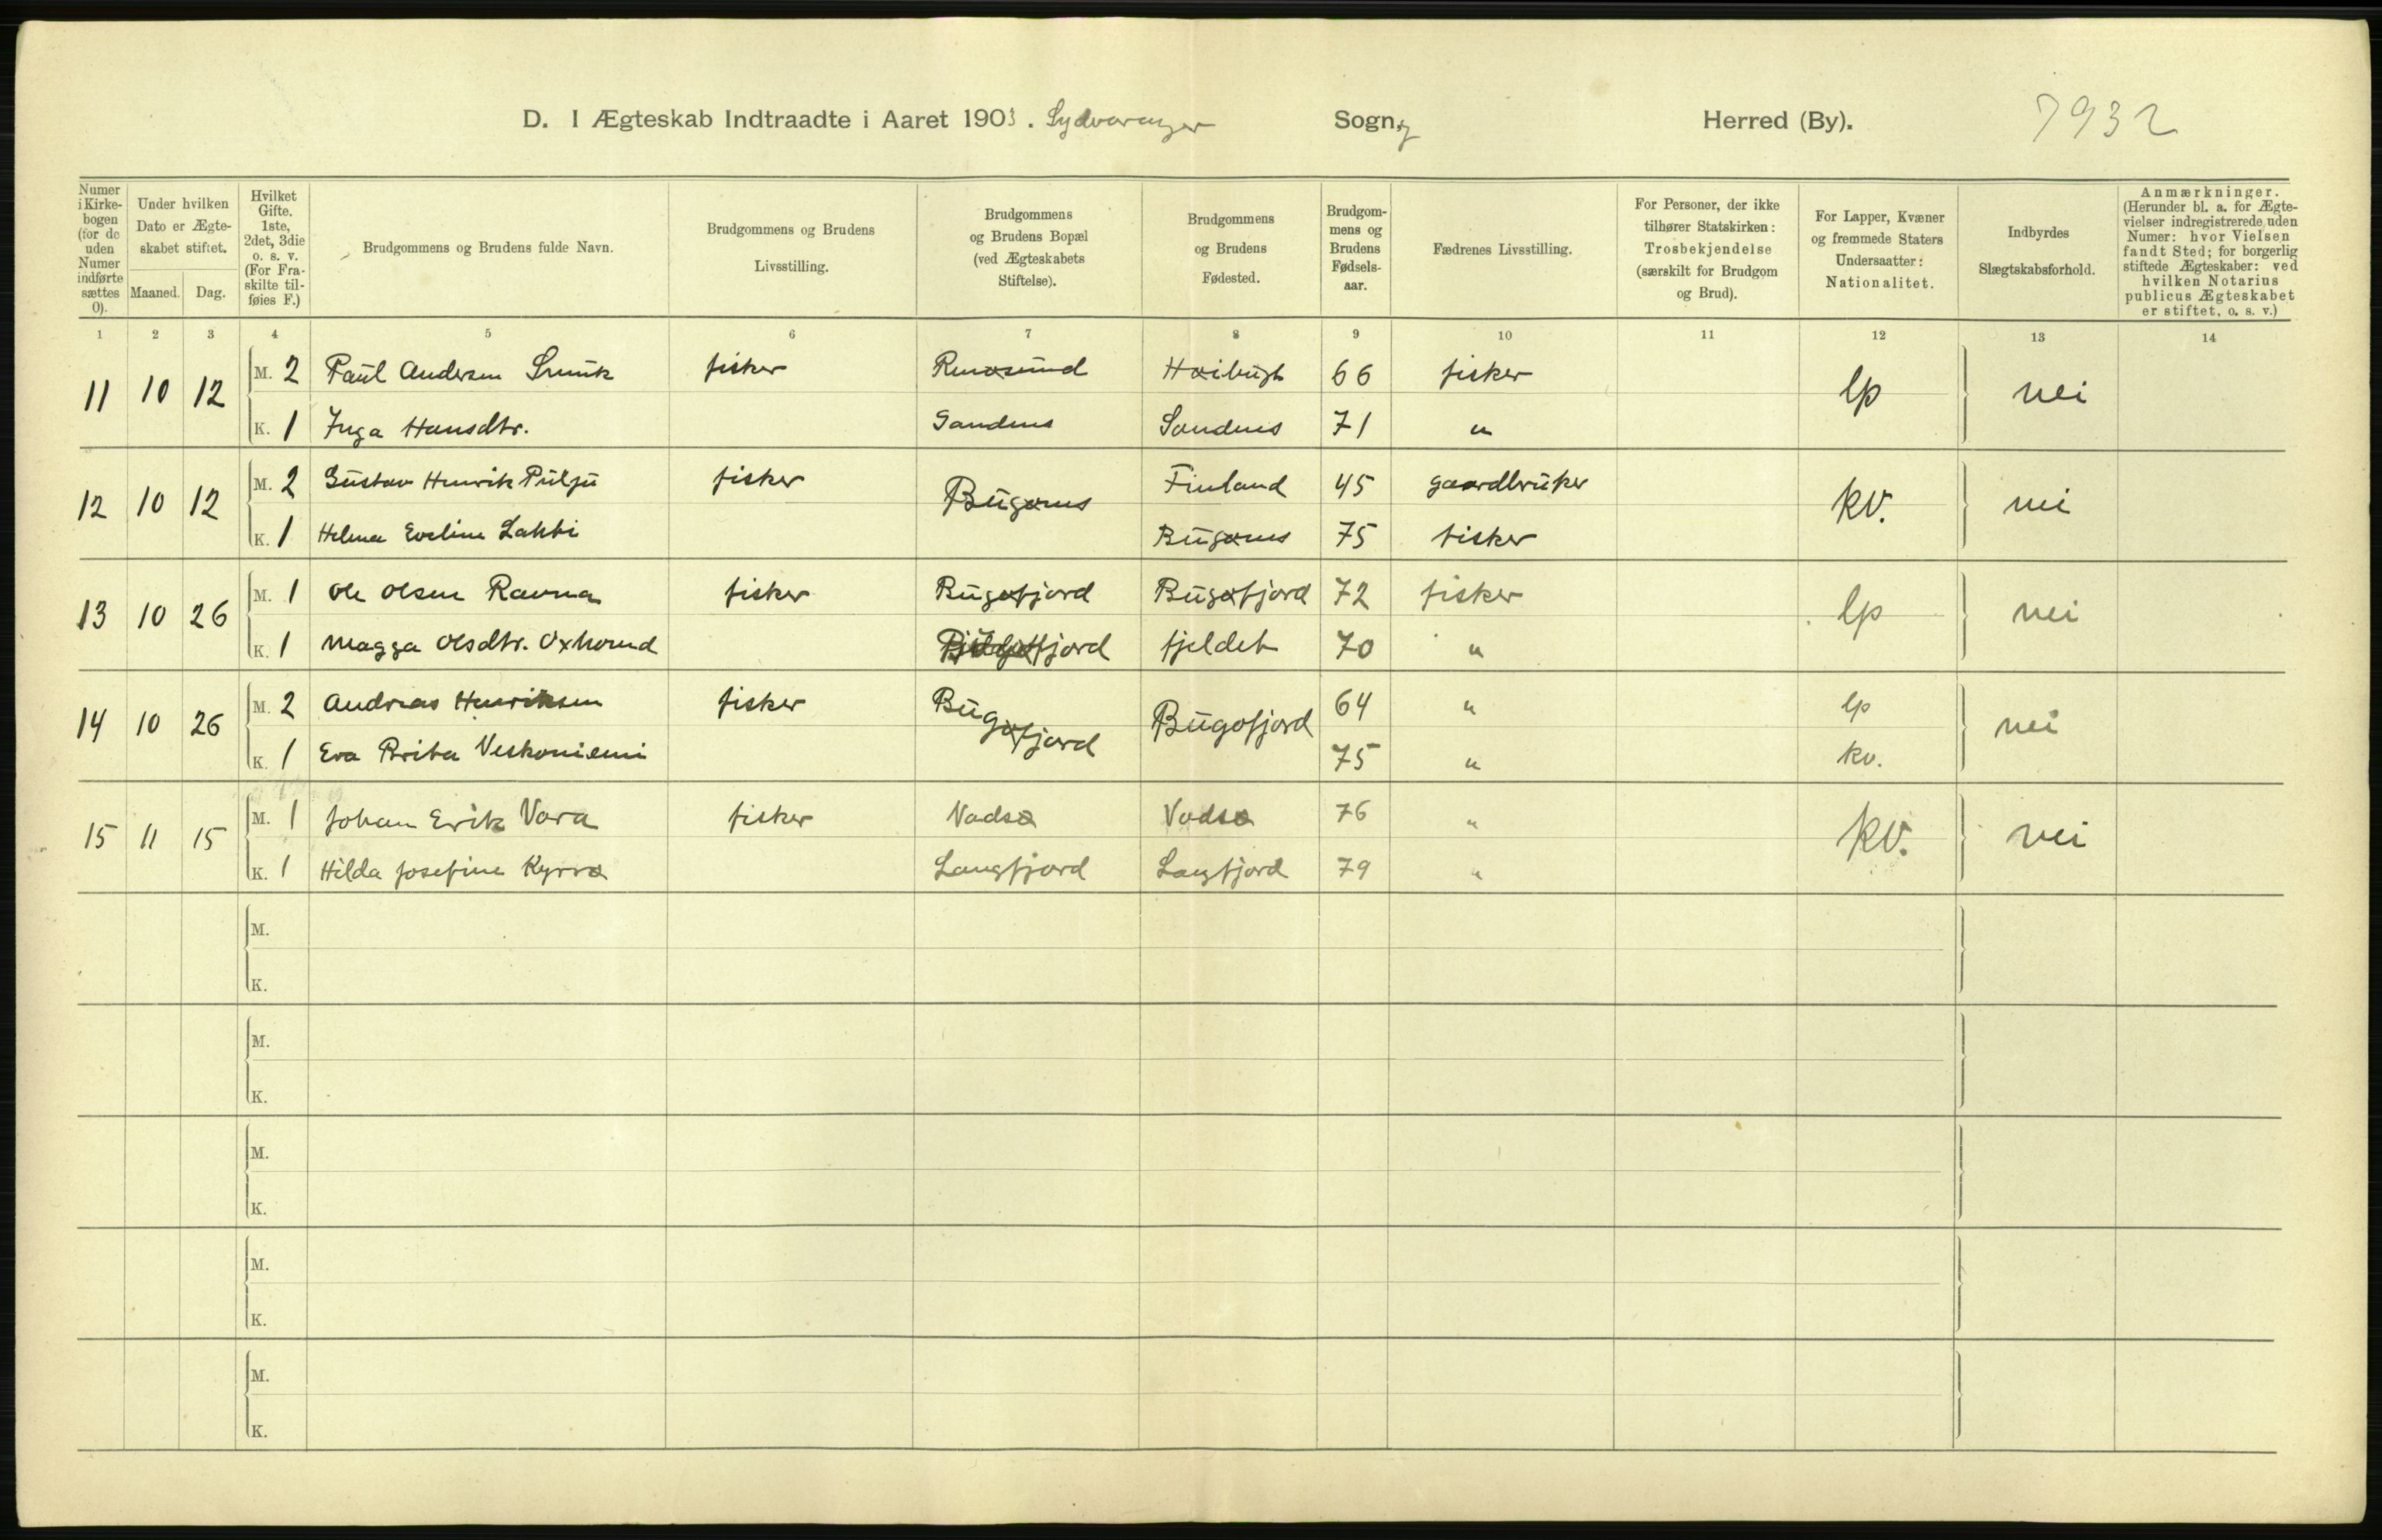 D. I Ægteskab Indtraadte i Aaret 1903. Sydvaranger Sogn, Herred (By). 7932
Numer i Kirkebogen (for de uden Numer indførte sættes 0).
Under hvilken Dato er Ægteskabet stiftet.
Maaned. Dag.
Hvilket Gifte. 1ste, 2det, 3die o. s. v. (For Fraskilte tilføies F.)
Brudgommens og Brudens fulde Navn.
Brudgommens og Brudens Livsstilling.
Brudgommens og Brudens Bopæl (ved Ægteskabets Stiftelse).
Brudgommens og Brudens Fødested.
Brudgommens og Brudens Fødselsaar.
Fædrenes Livsstilling.
For Personer, der ikke tilhører Statskirken: Trosbekjendelse (særskilt for Brudgom og Brud).
For Lapper, Kvæner og fremmede Staters Undersaatter: Nationalitet.
Indbyrdes Slægtskabsforhold.
Anmærkninger. (Herunder bl. a. for Ægtevielser indregistrerede uden Numer: hvor Vielsen fandt Sted; for borgerlig stiftede Ægteskaber: ved hvilken Notarius publicus Ægteskabet er stiftet, o. s. v.)
1 2 3 4 5 6 7 8 9 10 11 12 13 14
11 10 12 M. 2 Paul Andersen fisker 66 fisker lp nei
K. 1 Inga Hansdtr. Sandnes Sandnes 71 "
12 10 12 M. 2 Gustav Henrik Pulju fisker Bugønes Finland 45 gaardbruker kv. nei
K. 1 Helma Eveline Lakki Bugønes 75 fisker
13 10 26 M. 1 Ole Olsen Ravna fisker Bugøfjord Bugøfjord 72 fisker lp nei
K. 1 Magga Olsdtr. Oxhovud fjord fjeldet 70 "
14 10 26 M. 2 Andreas Henriksen fisker Bugøfjord Bugøfjord 64 " lp nei
K. 1 Eva Brita Veskoniemi 75 " kv.
15 11 15 M. 1 Johan Erik Vara fisker Vadsø Vadsø 76 " kv. nei
K. 1 Hilda Josefine Kyrrø Langfjord Langfjord 79 "
M.
K.
M.
K.
M.
K.
M.
K.
M.
K.